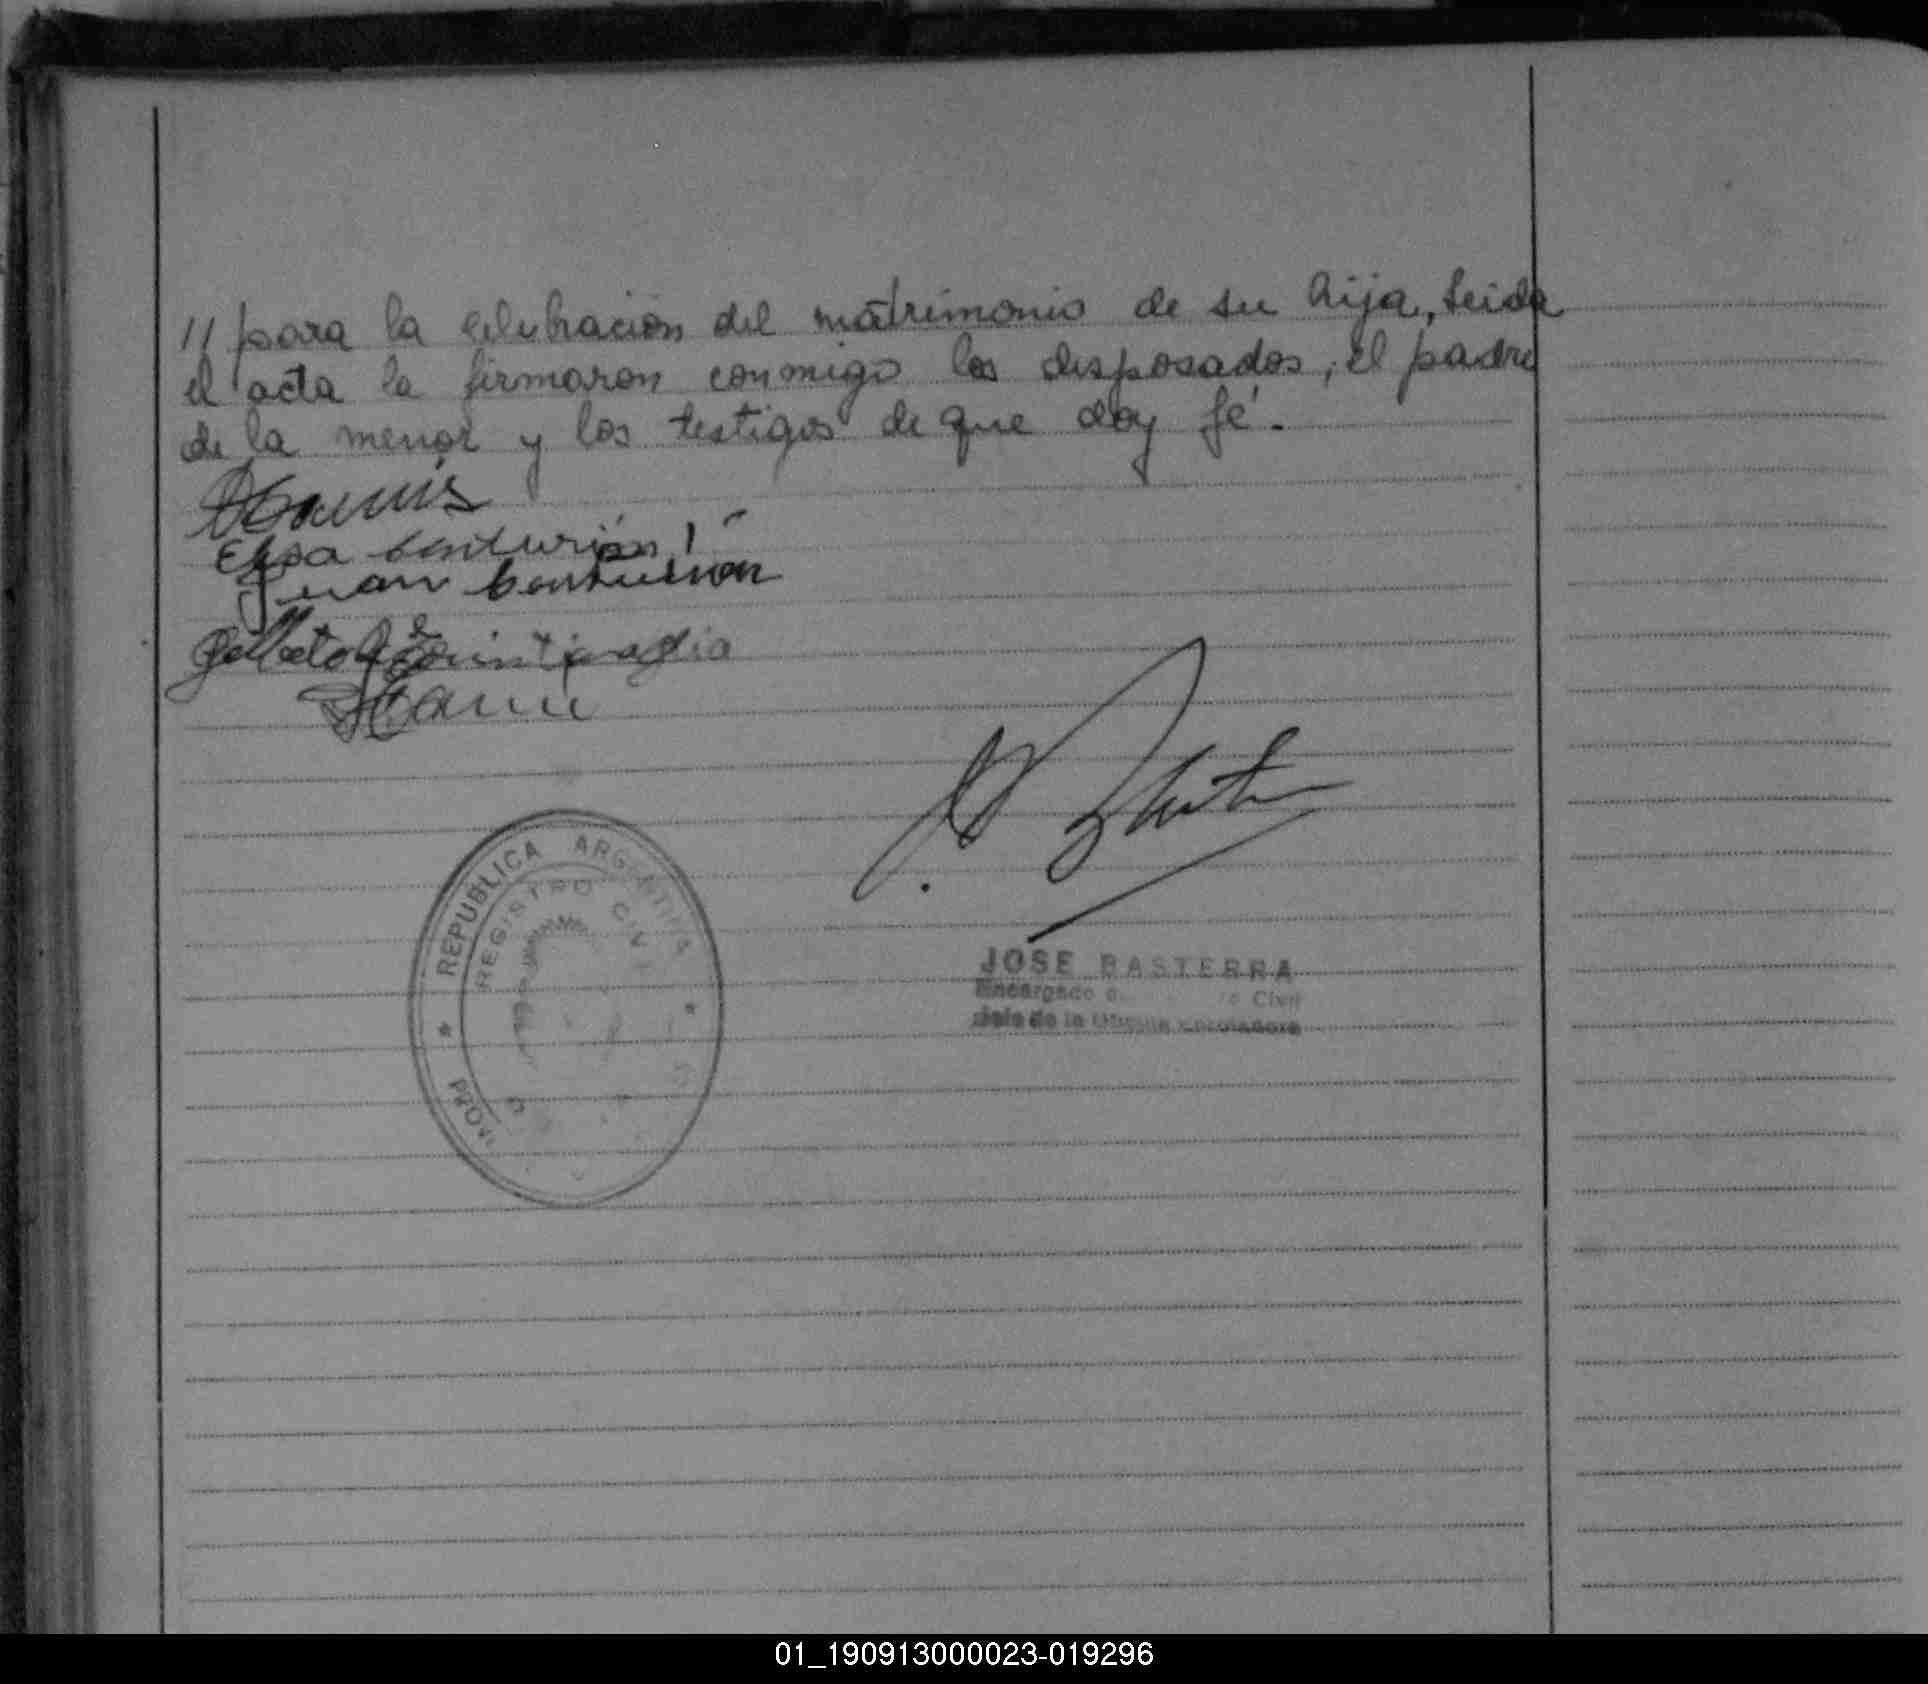 // para la celebración del matrimonio de su hija, Leida
el acta la firmaron conmigo los desposados, el padre
de la menor y los testigos de que doy fé.
Elsa Centurión
Juan Centurion
REPUBLICA ARGENTINA
REGISTRO CIVIL
PROV
JOSE BASTERRA
Encargado d ro Civil
Jefe de la Oficina Enroladora
01_190913000023-019296